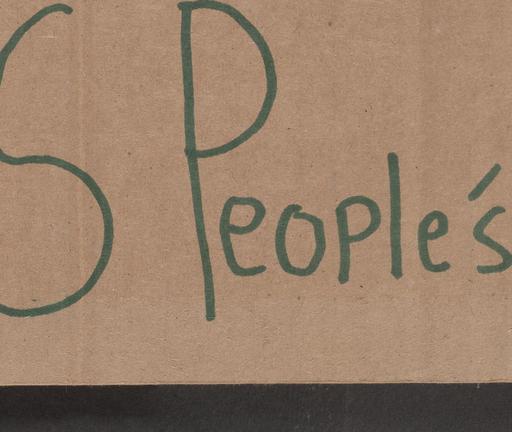 S People's